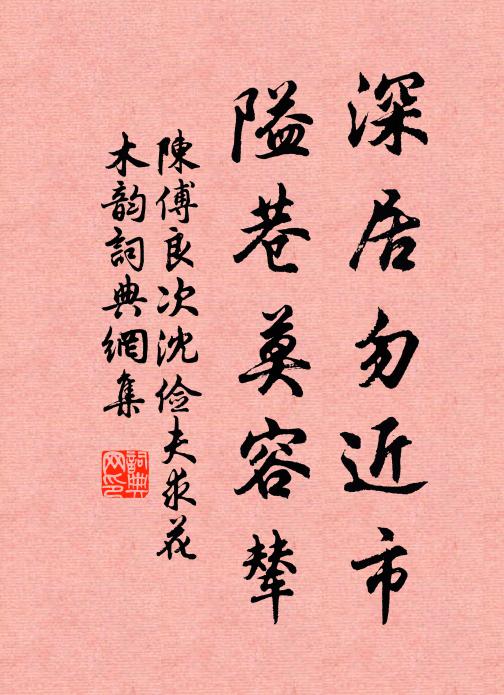 深居勿近市
隘巷莫容輦
陳傅良次沈儉夫求花
木韵詞典網集
詞典網印